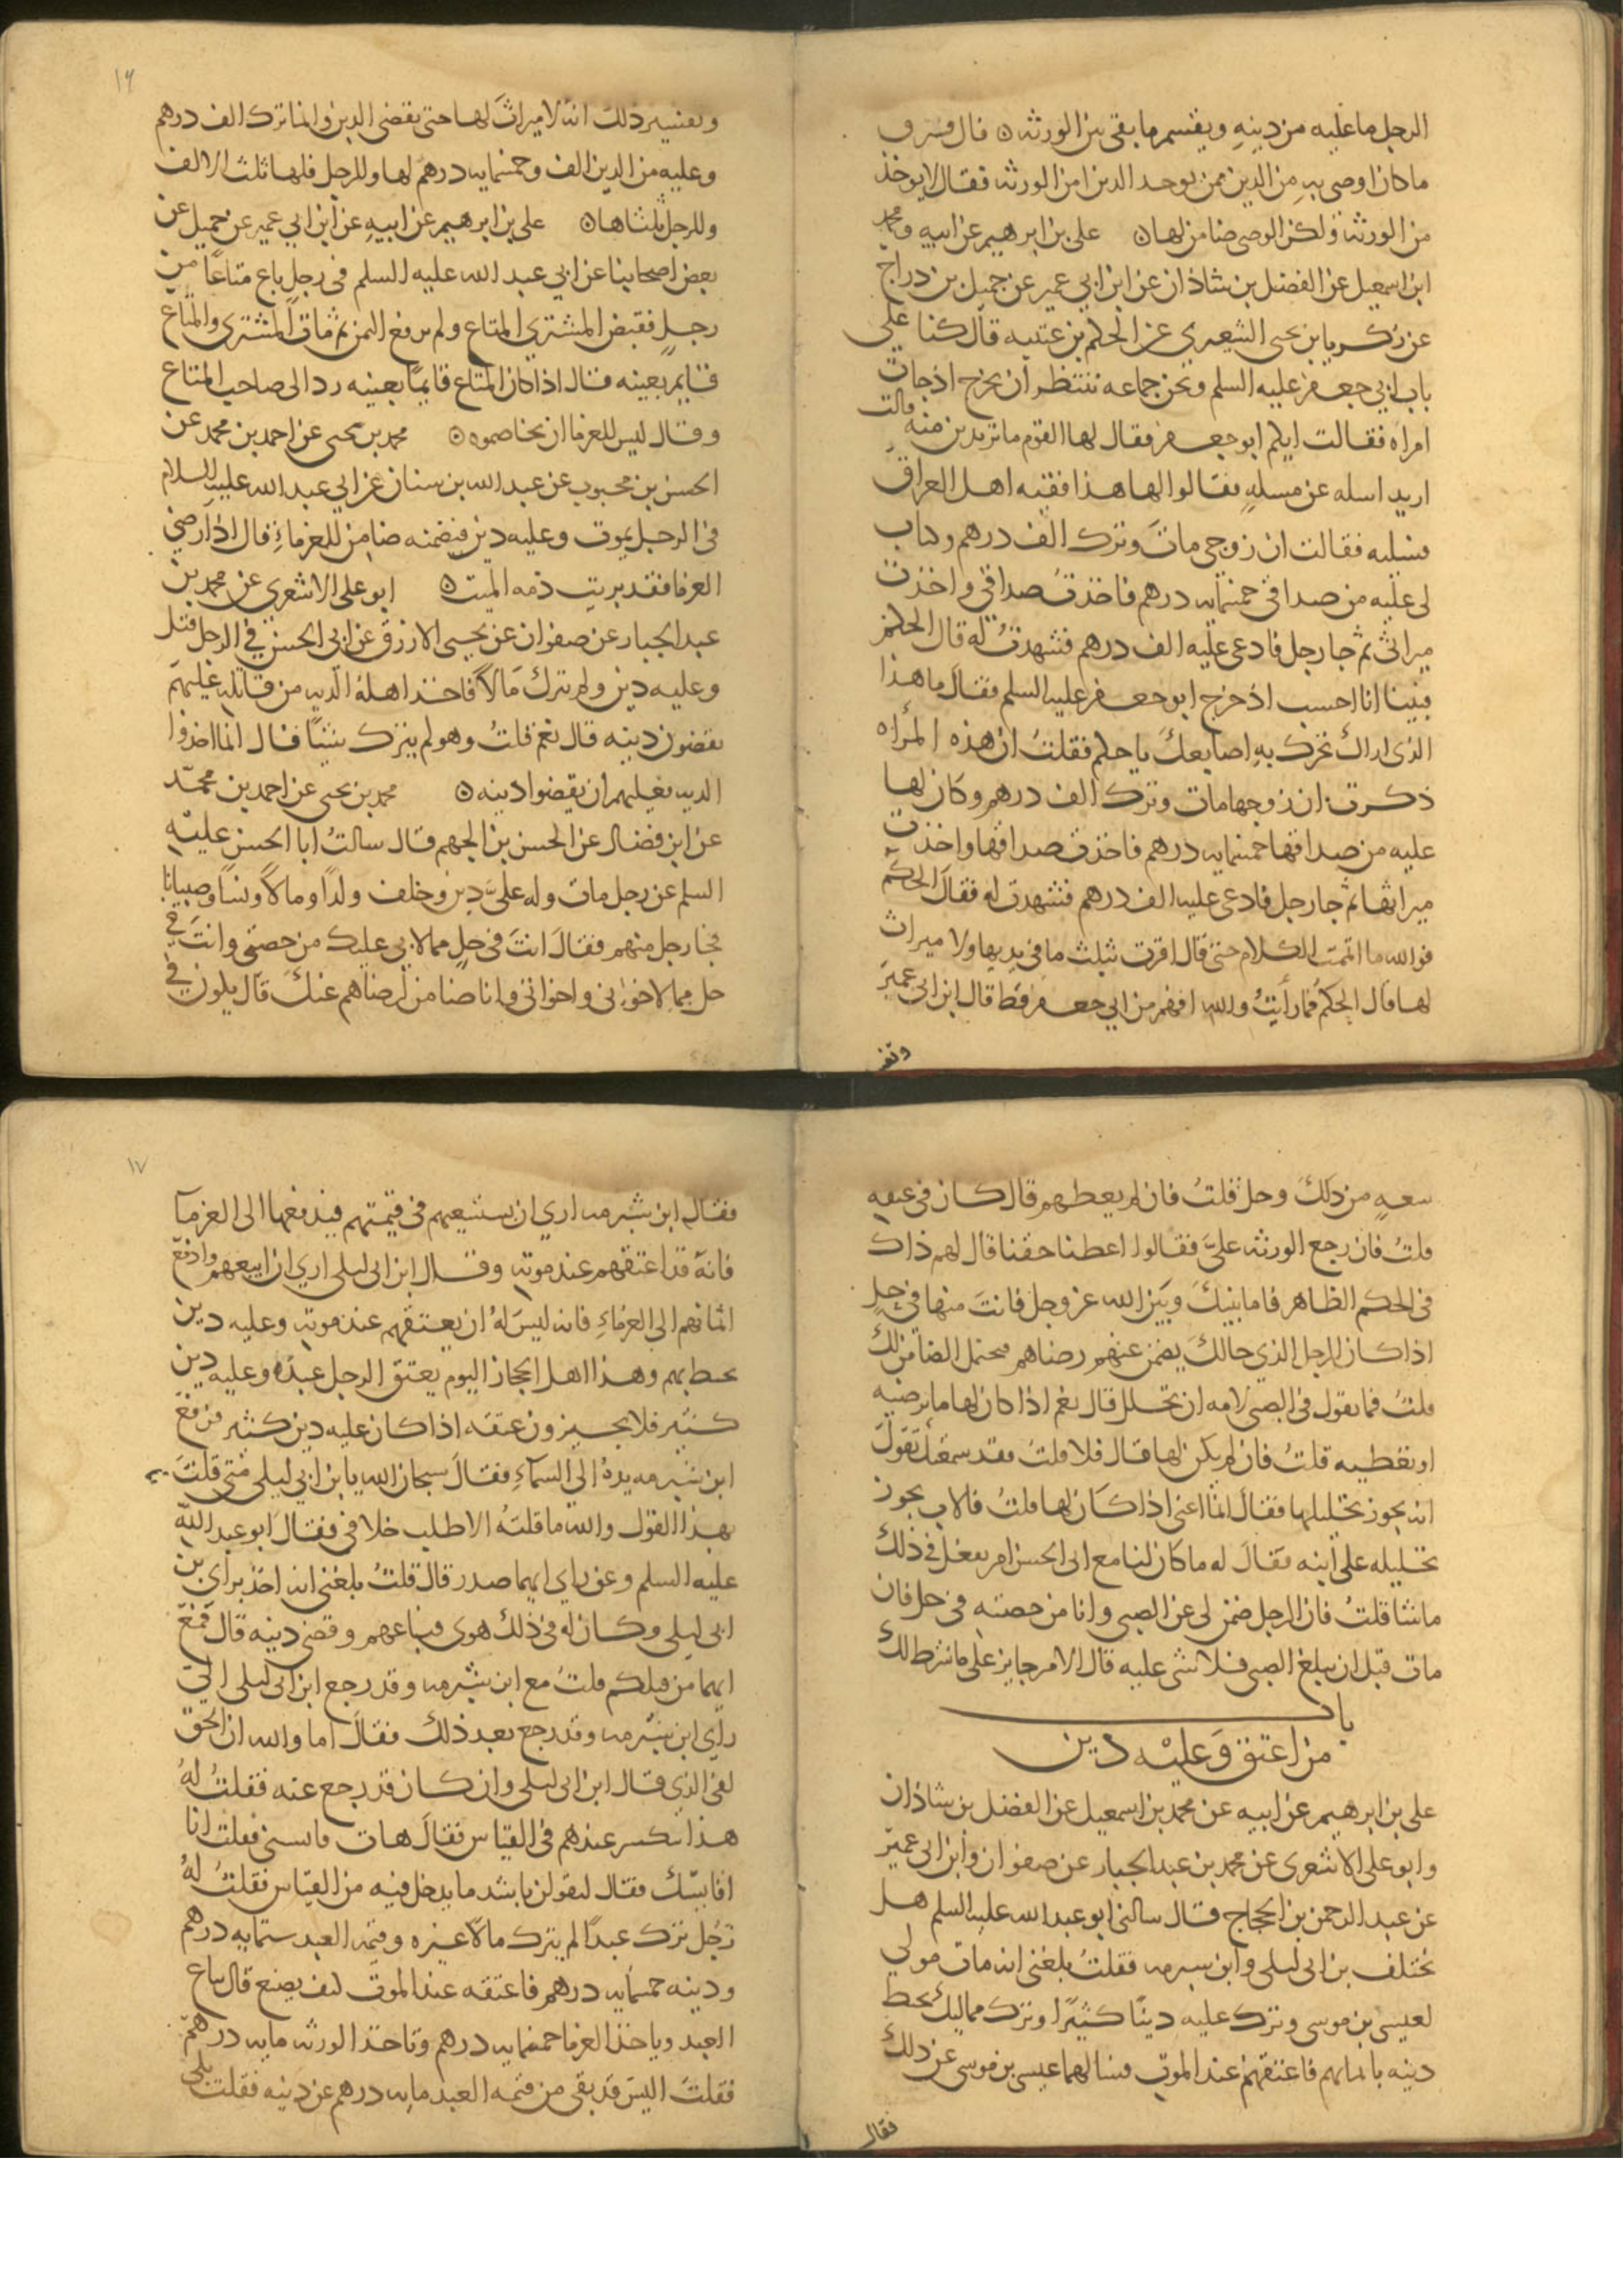 الرجل ما عليه من دينه ويقسم ما بقي بين الورثه ه قال فسرق
ما كان اوصى به من الدين ممن يوخد الدين امن الورثه فقال لا يوخذ
من الورثة ولكن الوصي ضامن لها ه علي بن ابرهيم عن ابيه ومحمد
ابن اسمعيل عن الفضل بن شاذان عن ابن ابي عمير عن جميل بن دراج
عن زكريا بن يحيى الشعيري عن الحكم بن عتيبه قال كنا على
باب ابي جعفر عليه السلم ونحن جماعه ننتظر ان يخرج اذ جات
امراه فقالت ايكم ابو جعفر فقال لها القوم ما تريدين منه قالت
اريد اسله عن مسله فقالوا لها هذا فقيه اهل العراق
فسليه فقالت ان زوجي مات وترك الف درهم وكان
لي عليه من صداقي خمسمايه درهم فاخذت صداقي واخذت
ميراثي ثم جا رجل فادعى عليه الف درهم فشهدت له قال الحكم
فبينا انا احسب اذ خرج ابو جعفر عليه السلم فقال ما هذا
الذي اراك تحرك به اصابعك يا حكم فقلت ان هذه المراه
ذكرت ان زوجها مات وترك الف درهم وكان لها
عليه من صداقها خمسمايه درهم فاخذت صداقها واخذت
ميراثها ثم جا رجل فادعى عليه الف درهم فشهدت له فقال الحكم
فوالله ما اتممت الكلام حتى قال اقرت بثلث ما في يديها ولا ميراث
لها قال الحكم فما رأيت والله افهم من ابي جعفر قط قال ابن ابي عمير
وتفسير
١٦
وتفسير ذلك انه لا ميراث لها حتى تقضي الدين وانما ترك الف درهم
وعليه من الدين الف وخمسمايه درهم لها وللرجل فلها ثلث الالف
وللرجل ثلثاها ه علي بن ابرهيم عن ابيه عن ابن ابي عمير عن جميل عن
بعض اصحابنا عن ابي عبد الله عليه السلم في رجل باع متاعا من
رجل فقبض المشتري المتاع ولم يدفع الثمن ثم مات المشتري والمتاع
قايم بعينه فقال اذا كان المتاع قايما بعينه رد الى صاحب المتاع
وقال ليس للغرما ان يخاصموه ه محمد بن يحيى عن احمد بن محمد عن
الحسن بن محبوب عن عبد الله بن سنان عن ابي عبد الله عليه السلام
في الرجل يموت وعليه دين فيضمنه ضامن للغرماء قال اذا رضي
الغرما فقد بريت ذمه الميت ه ابو علي الاشعري عن محمد بن
عبد الجبار عن صفوان عن يحيى الازرق عن ابي الحسن في الرجل قتل
وعليه دين ولم يترك مالا فاخذ اهله الديه من قاتله عليهم
يقضون دينه قال نعم قلت وهو لم يترك شيئا قال انما اخذوا
الديه فعليهم ان يقضوا دينه ه محمد بن يحيى عن احمد بن محمد
عن ابن فضال عن الحسن بن الجهم قال سالت ابا الحسن عليه
السلم عن رجل مات وله علي دين وخلف ولدا ومالا ونسا وصبيانا
فجا رجل منهم فقال انت في حل مما لابي عليك من حصتي وانت في
حل مما لاخوتي واخواتي وانا ضامن لرضاهم عنك قال يكون في
سعه من ذلك وحل قلت فان لم يعطهم قال كان في عنقه
قلت فان رجع الورثه علي فقالوا اعطنا حقنا قال لهم ذاك
في الحكم الظاهر فاما بينك وبين الله عز وجل فانت منها في حل
اذا كان الرجل الذي حالك يضمن عنهم رضاهم فيحتمل الضامن لك
قلت فما تقول في الصبي لامه ان تحلل قال نعم اذا كان لها ما ترضيه
او تعطيه قلت فان لم يكن لها قال فلا قلت فقد سمعتك تقول
انه يجوز تحليلها فقال انما اعني اذا كان لها قلت فالاب يجوز
تحليله على ابنه فقال له ما كان لنا مع ابي الحسن امر يفعل في ذلك
ما شا قلت فان الرجل ضمن لي عن الصبي وانا من حصته في حل فان
مات قبل ان يبلغ الصبي فلا شي عليه قال الامر جايز على ما شرط لك
باب
من اعتق وعليه دين
علي بن ابرهيم عن ابيه عن محمد بن اسمعيل عن الفضل بن شاذان
وابو علي الاشعري عن محمد بن عبد الجبار عن صفوان وابن ابي عمير
عن عبد الرحمن بن الحجاج قال سالني ابو عبد الله عليه السلم هل
يختلف بن ابي ليلى وابن شبرمه فقلت بلغني انه مات مولى
لعيسى بن موسى وترك عليه دينا كثيرا وترك مماليك يحيط
دينه باثمانهم فاعتقهم عند الموت فسالهما عيسى بن موسى عن ذلك
فقال
١٧
فقال ابن شبرمه اري ان يستسعيهم في قيمتهم فيدفعها الى الغرما
فانه قد اعتقهم عند موته وقال ابن ابي ليلى اري ان ابيعهم وادفع
اثمانهم الى الغرماء فانه ليس له ان يعتقهم عند موته وعليه دين
يحيط بهم وهذا اهل الحجاز اليوم يعتق الرجل عبده وعليه دين
كثير فلا يجيزون عتقه اذا كان عليه دين كثير فرفع
ابن شبرمه يده الى السماء فقال سبحان الله يا بن ابي ليلى متى قلت
بهذا القول والله ما قلته الا طلب خلافي فقال ابو عبد الله
عليه السلم وعن راي ايهما صدر قال قلت بلغني انه اخذ براي بن
ابي ليلى وكان له في ذلك هوى فباعهم وقضى دينه قال فمع
ايهما من قبلكم قلت مع ابن شبرمه وقد رجع ابن ابي ليلى الى
راي ابن شبرمه وقد رجع بعد ذلك فقال اما والله ان الحق
لفي الذي قال ابن ابي ليلى وان كان قد رجع عنه فقلت له
هذا ينكسر عندهم في القياس فقال هات قايسني فقلت انا
اقايسك فقال لتقولن باشد ما يدخل فيه من القياس فقلت له
رجل ترك عبدا لم يترك مالا غيره وقيمه العبد ستمايه درهم
ودينه خمسمايه درهم فاعتقه عند الموت كيف يصنع قال يباع
العبد وياخذ الغرما خمسمايه درهم وتاخذ الورثه مايه درهم
فقلت اليس قد بقي من قيمه العبد مايه درهم عن دينه فقلت بلى